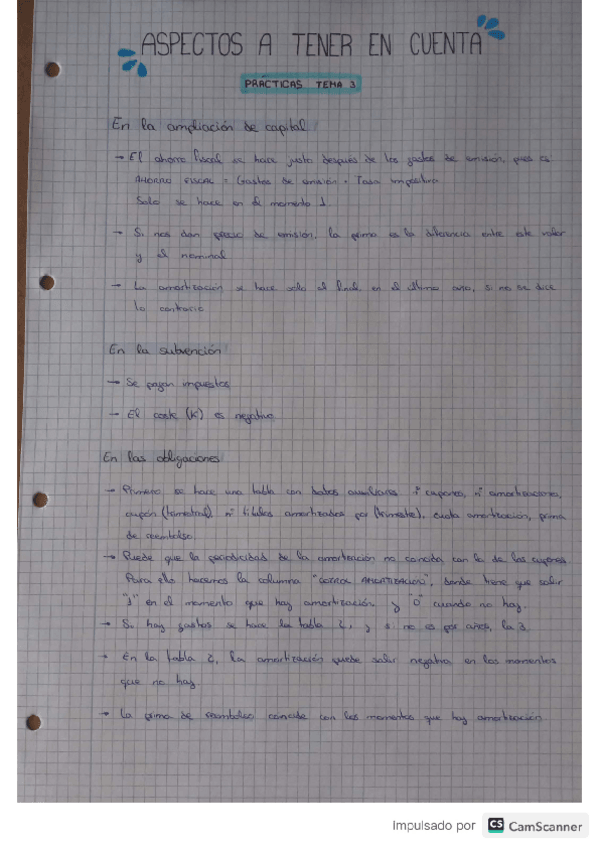 ASPECTOS A TENER EN CUENTA
PRÁCTICAS TEMA 3
En la ampliación de capital:
→ El ahorro fiscal se hace justo después de los gastos de emisión, pues es
AHORRO FISCAL = Gastos de emisión · Tasa impositiva
Solo se hace en el momento 1.
→ Si nos dan precio de emisión, la prima es la diferencia entre este valor
y el nominal
→ La amortización se hace solo al final, en el último año, si no se dice
lo contrario
En la subvención:
→ Se pagan impuestos
→ El coste (K) es negativo
En las obligaciones:
→ Primero se hace una tabla con datos auxiliares: nº cupones, nº amortizaciones,
cupón (trimestral), nº títulos amortizados por (trimestre), cuota amortización, prima
de reembolso.
→ Puede que la periodicidad de la amortización no coincida con la de los cupones.
Para ello hacemos la columna "CONTROL AMORTIZACIÓN", donde tiene que salir
"1" en el momento que hay amortización y "0" cuando no hay.
→ Si hay gastos se hace la tabla 2, y si no es por años, la 3.
→ En la tabla 2, la amortización puede salir negativa en los momentos
que no hay.
→ La prima de reembolso coincide con los momentos que hay amortización
Impulsado por CS CamScanner